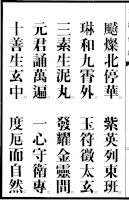 飈燦北停華　紫英列東班
琳和九霄外　玉符徵太玄
三素生泥丸　發耀金靈間
元君誦萬遍　一心守衛專
十善生玄中　度厄而自然